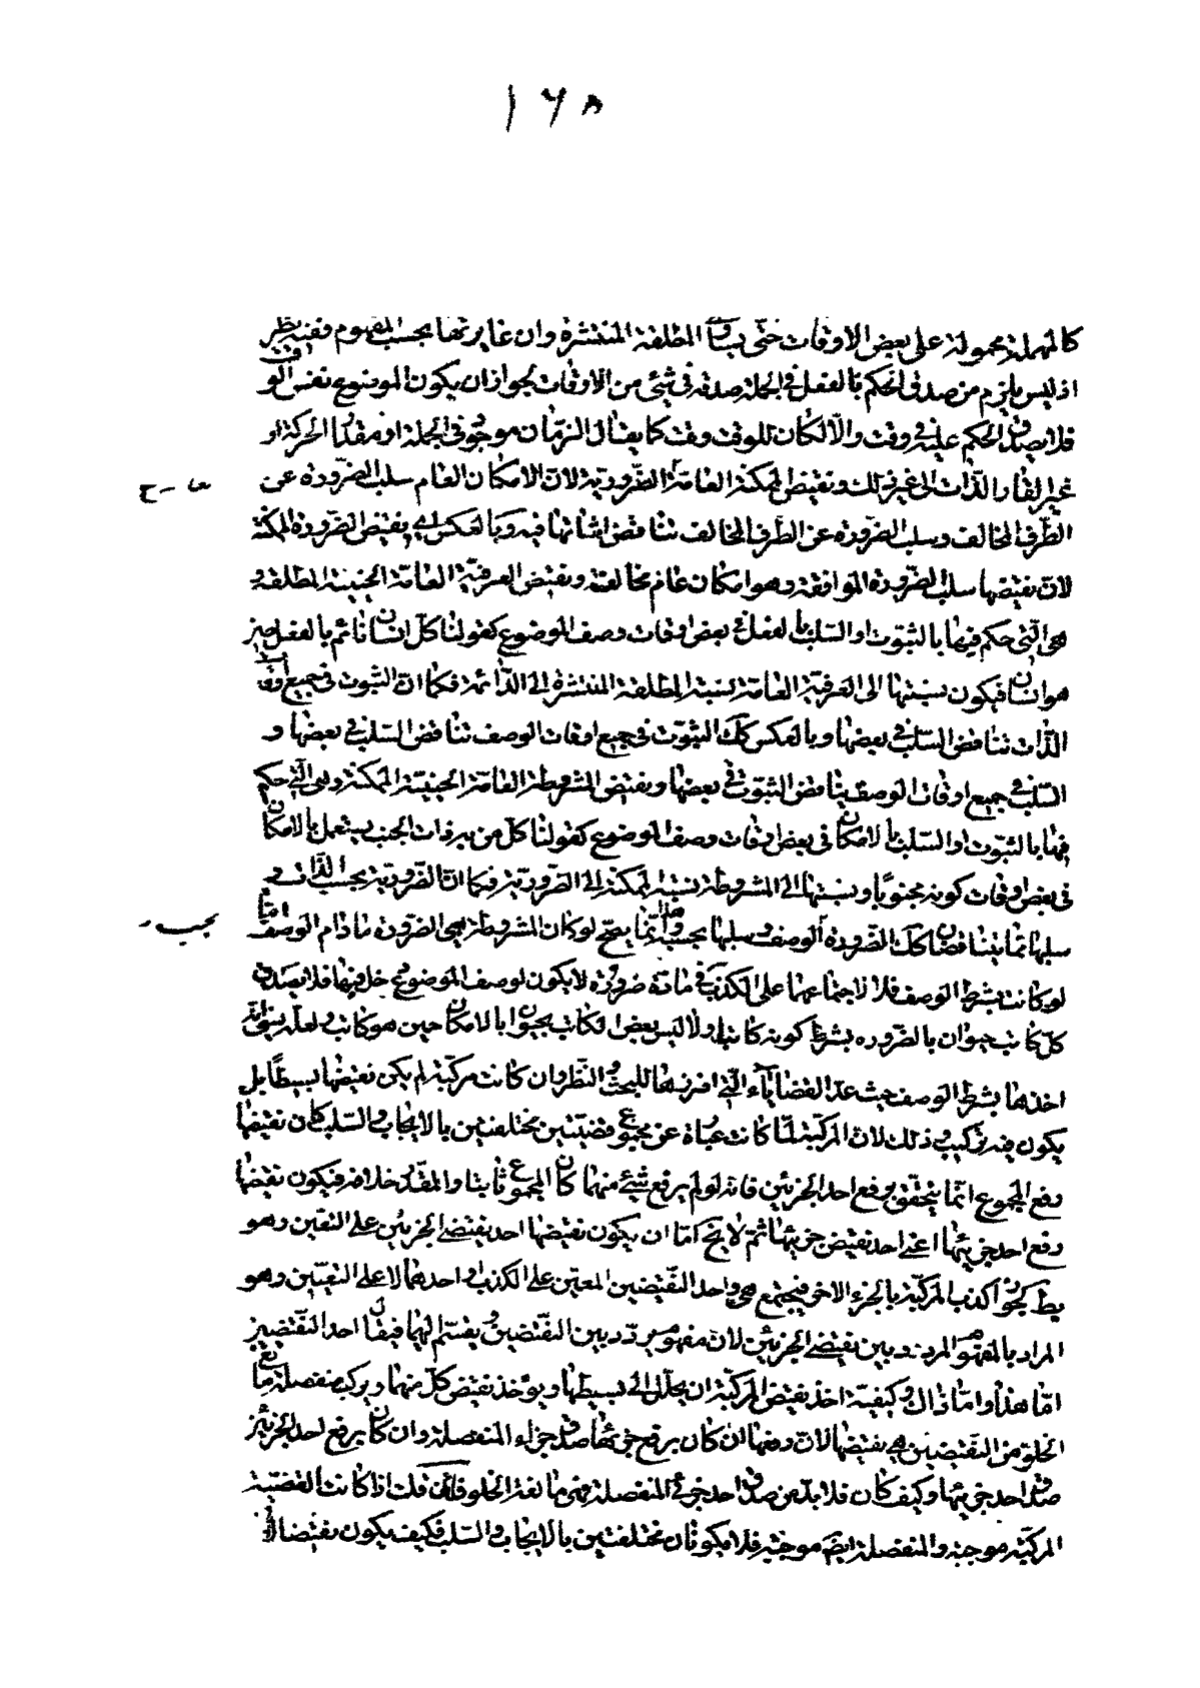 ١٦٨
كالمهملة محمولة على بعض الاوقات حتى يساوق المطلقة المنتشرة وان غايرتها بحسب المفهوم وفيه نظر
اذ ليس يلزم من صدق الحكم بالفعل فى الجملة صدقه فى شئ من الاوقات لجواز ان يكون الموضوع نفس الوقت
فلا يصدق الحكم عليه فى وقت والا لكان للوقت وقت كما يقال الزمان موجود فى الجملة او مقدار الحركة او
غير القار الذات الى غير ذلك ونقيض الممكنة العامة الضرورية لان الامكان العام سلب الضرورة عن
الطرف المخالف وسلب الضرورة عن الطرف المخالف تناقض اثباتها فيه وبالعكس اى نقيض الضرورة الممكنة
لان نقيضها سلب الضرورة الموافقة وهو امكان عام مخالفة ونقيض العرفية العامة الحينية المطلقة و
هى التى حكم فيها بالثبوت او السلب بالفعل فى بعض اوقات وصف الموضوع كقولنا كل انسان نائم بالفعل حين
هو انسان فيكون نسبتها الى العرفية العامة نسبة المطلقة المنتشرة الى الدائمة فكما ان الثبوت فى جميع اوقات
الذات تناقض السلب فى بعضها وبالعكس كك الثبوت فى جميع اوقات الوصف تناقض السلب فى بعضها و
السلب فى جميع اوقات الوصف يناقض الثبوت فى بعضها ونقيض المشروطة العامة الحينية الممكنة وهى التى حكم
فيها بالثبوت او السلب بالامكان فى بعض اوقات وصف الموضوع كقولنا كل من به ذات الجنب يسعل بالامكان
فى بعض اوقات كونه مجنوبا ونسبتها الى المشروطة نسبة الممكنة الى الضرورية فكما ان الضرورية بحسب الذات و
سلبها مما يتناقضان كك الضرورة الوصف وسلبها بحسبه وهذا انما يصح لو كان المشروطة هى الضرورة ما دام الوصف اما
لو كانت بشرط الوصف فلا لاجتماعهما على الكذب فى مادة ضرورة لا يكون لوصف الموضوع دخل فيها فلا يصدق
كل كاتب حيوان بالضرورة بشرط كونه كاتبا ولا ليس بعض الكاتب بحيوان بالامكان حين هو كاتب ولعله
اخذها بشرط الوصف حيث عد القضايا التى افرزها للبحث والنظر وان كانت مركبة لم يكن نقيضها بسيطا بل
يكون فيه تركيب وذلك لان المركبة لما كانت عبارة عن مجموع قضيتين مختلفتين بالايجاب والسلب كان نقيضها
رفع المجموع انما يتحقق برفع احد الجزئين فانه لو لم يرفع شئ منهما كان المجموع ثابتا والمقدر خلافه فيكون نقيضها
رفع احد جزئيها اعنى احد نقيض جزئيها ثم لا يخ اما ان يكون نقيضها احد نقيضى الجزئين على التعيين وهو
بط لجواز كذب المركبة بالجزء الاخر فيجتمع هى واحد النقيضين المعين على الكذب او احدهما لا على التعيين وهو
المراد بالمفهوم المردد بين نقيضى الجزئين لان مفهوم مردد بين النقيضين ويقسم اليهما فيقال احد النقيضين
اما هذا واما ذاك وكيفية اخذ نقيض المركبة ان يحلل الى بسيطها ويؤخذ نقيض كل منهما ويركب منفصلة مانعة
الخلو من النقيضين هى نقيضها لان رفعها ان كان برفع جزئيها صدق جزاء المنفصلة وان كان برفع احد الجزئين
صدق احد جزئيها وكيف كان فلا بد من صدق احد جزئى المنفصلة فهى مانعة الخلو فان قلت اذا كانت القضية
المركبة موجبة والمنفصلة ايضا موجبة فلا يكونان مختلفتين بالايجاب والسلب فكيف يكون نقيضا